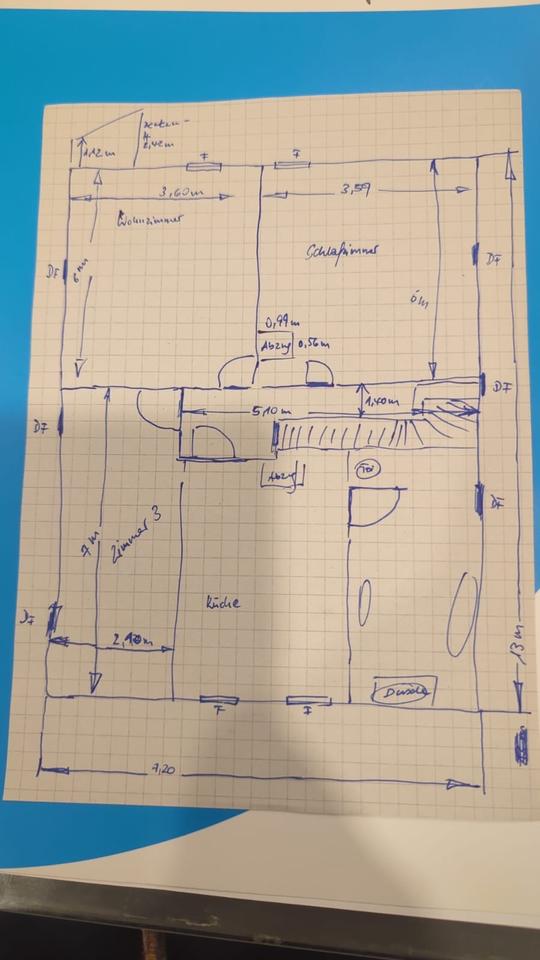 1,12m
2,42m
F
F
3,60m
3,59
Wohnzimmer
Schlafzimmer
DF
6m
DF
6m
0,99m
Abzug 0,56m
DF
5,10m
1,40m
DF
Abzug
DF
7m
Zimmer 3
Küche
DF
2,10m
13m
Dusche
F
F
7,20